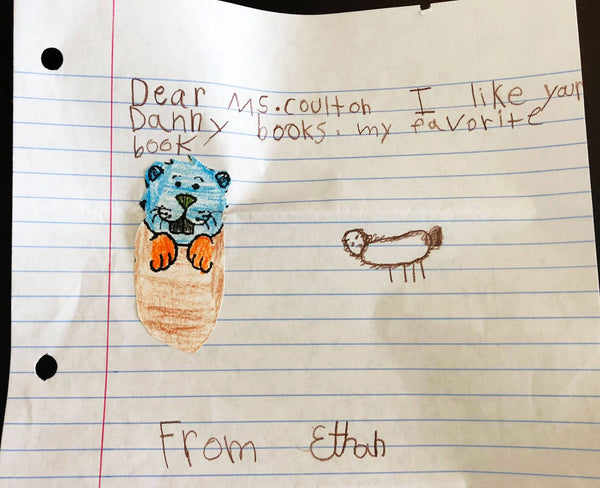 Dear Ms. Coulton I like your
Danny books. my favorite
book
From Ethan